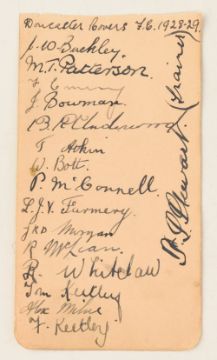 Doncaster Rovers F.C. 1928-29.
J. W. Buckley.
M. T. Patterson.
F Emery
J. Bowman.
B. R. Underwood
T Atkin
W. Bott.
P. McConnell
L. J. V. Furmery.
Morgan
R McLean.
R. Whitelaw
Tom Keetley
Alex Milne
F. Keetley
Stewart. (Trainer)